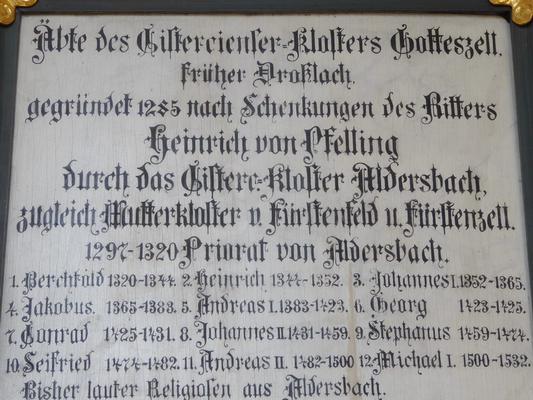 Äbte des Cistercienser-Klosters Gotteszell,
früher Droßlach,
gegründet 1285 nach Schenkungen des Ritters
Heinrich von Pfelling
durch das Cisterc.-Kloster Aldersbach,
zugleich Mutterkloster v. Fürstenfeld u. Fürstenzell.
1297-1320 Priorat von Aldersbach.
1. Berchtold 1320-1344. 2. Heinrich 1344-1352. 3. Johannes I. 1352-1365.
4. Jakobus. 1365-1383. 5. Andreas I. 1383-1423. 6. Georg 1423-1425.
7. Conrad 1425-1431. 8. Johannes II. 1431-1459. 9. Stephanus 1459-1474.
10. Seifried 1474-1482. 11. Andreas II. 1482-1500 12. Michael I. 1500-1532.
Bisher lauter Religiosen aus Aldersbach.